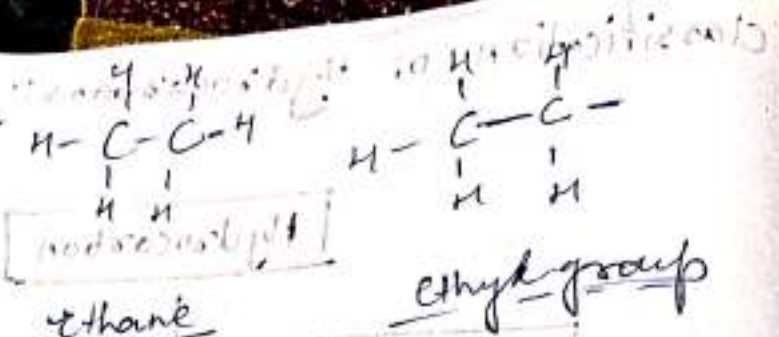 H H H H
H-C-C-H H-C-C-
H H H H
Ethane Ethyl group